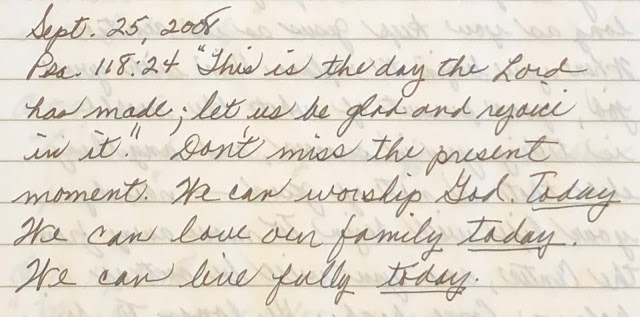 Sept. 25, 2008
Psa. 118:24 "This is the day the Lord
has made; let us be glad and rejoice
in it." Don't miss the present
moment. We can worship God. Today
We can love our family today.
We can live fully today.